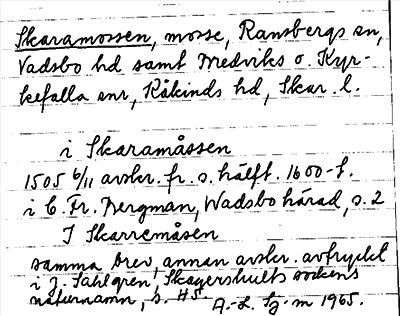 Skaramossen, mosse, Ransbergs sn,
Vadsbo hd samt Medviks o. Kyr-
kefalla snr, Kåkinds hd, Skar. l.
i Skaramåssen
1505 6/11 avskr. fr. s. hälft. 1600-t.
i C. Fr. Bergman, Wadsbo härad, s. 2
I Skarremåsen
samma brev, annan avskr. avtryckt
i J. Sahlgren, Skagershults sockens
naturnamn, s. 45.
A.-L. Hg-m 1965.